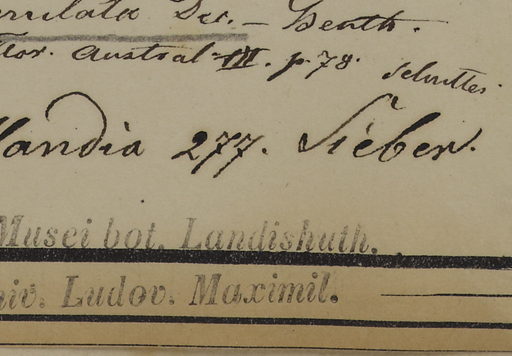 Dec. – Benth.
Flor. Austral. III. p. 78.
landia 277. Sieber.
Musei bot. Landishuth.
niv. Ludov. Maximil.